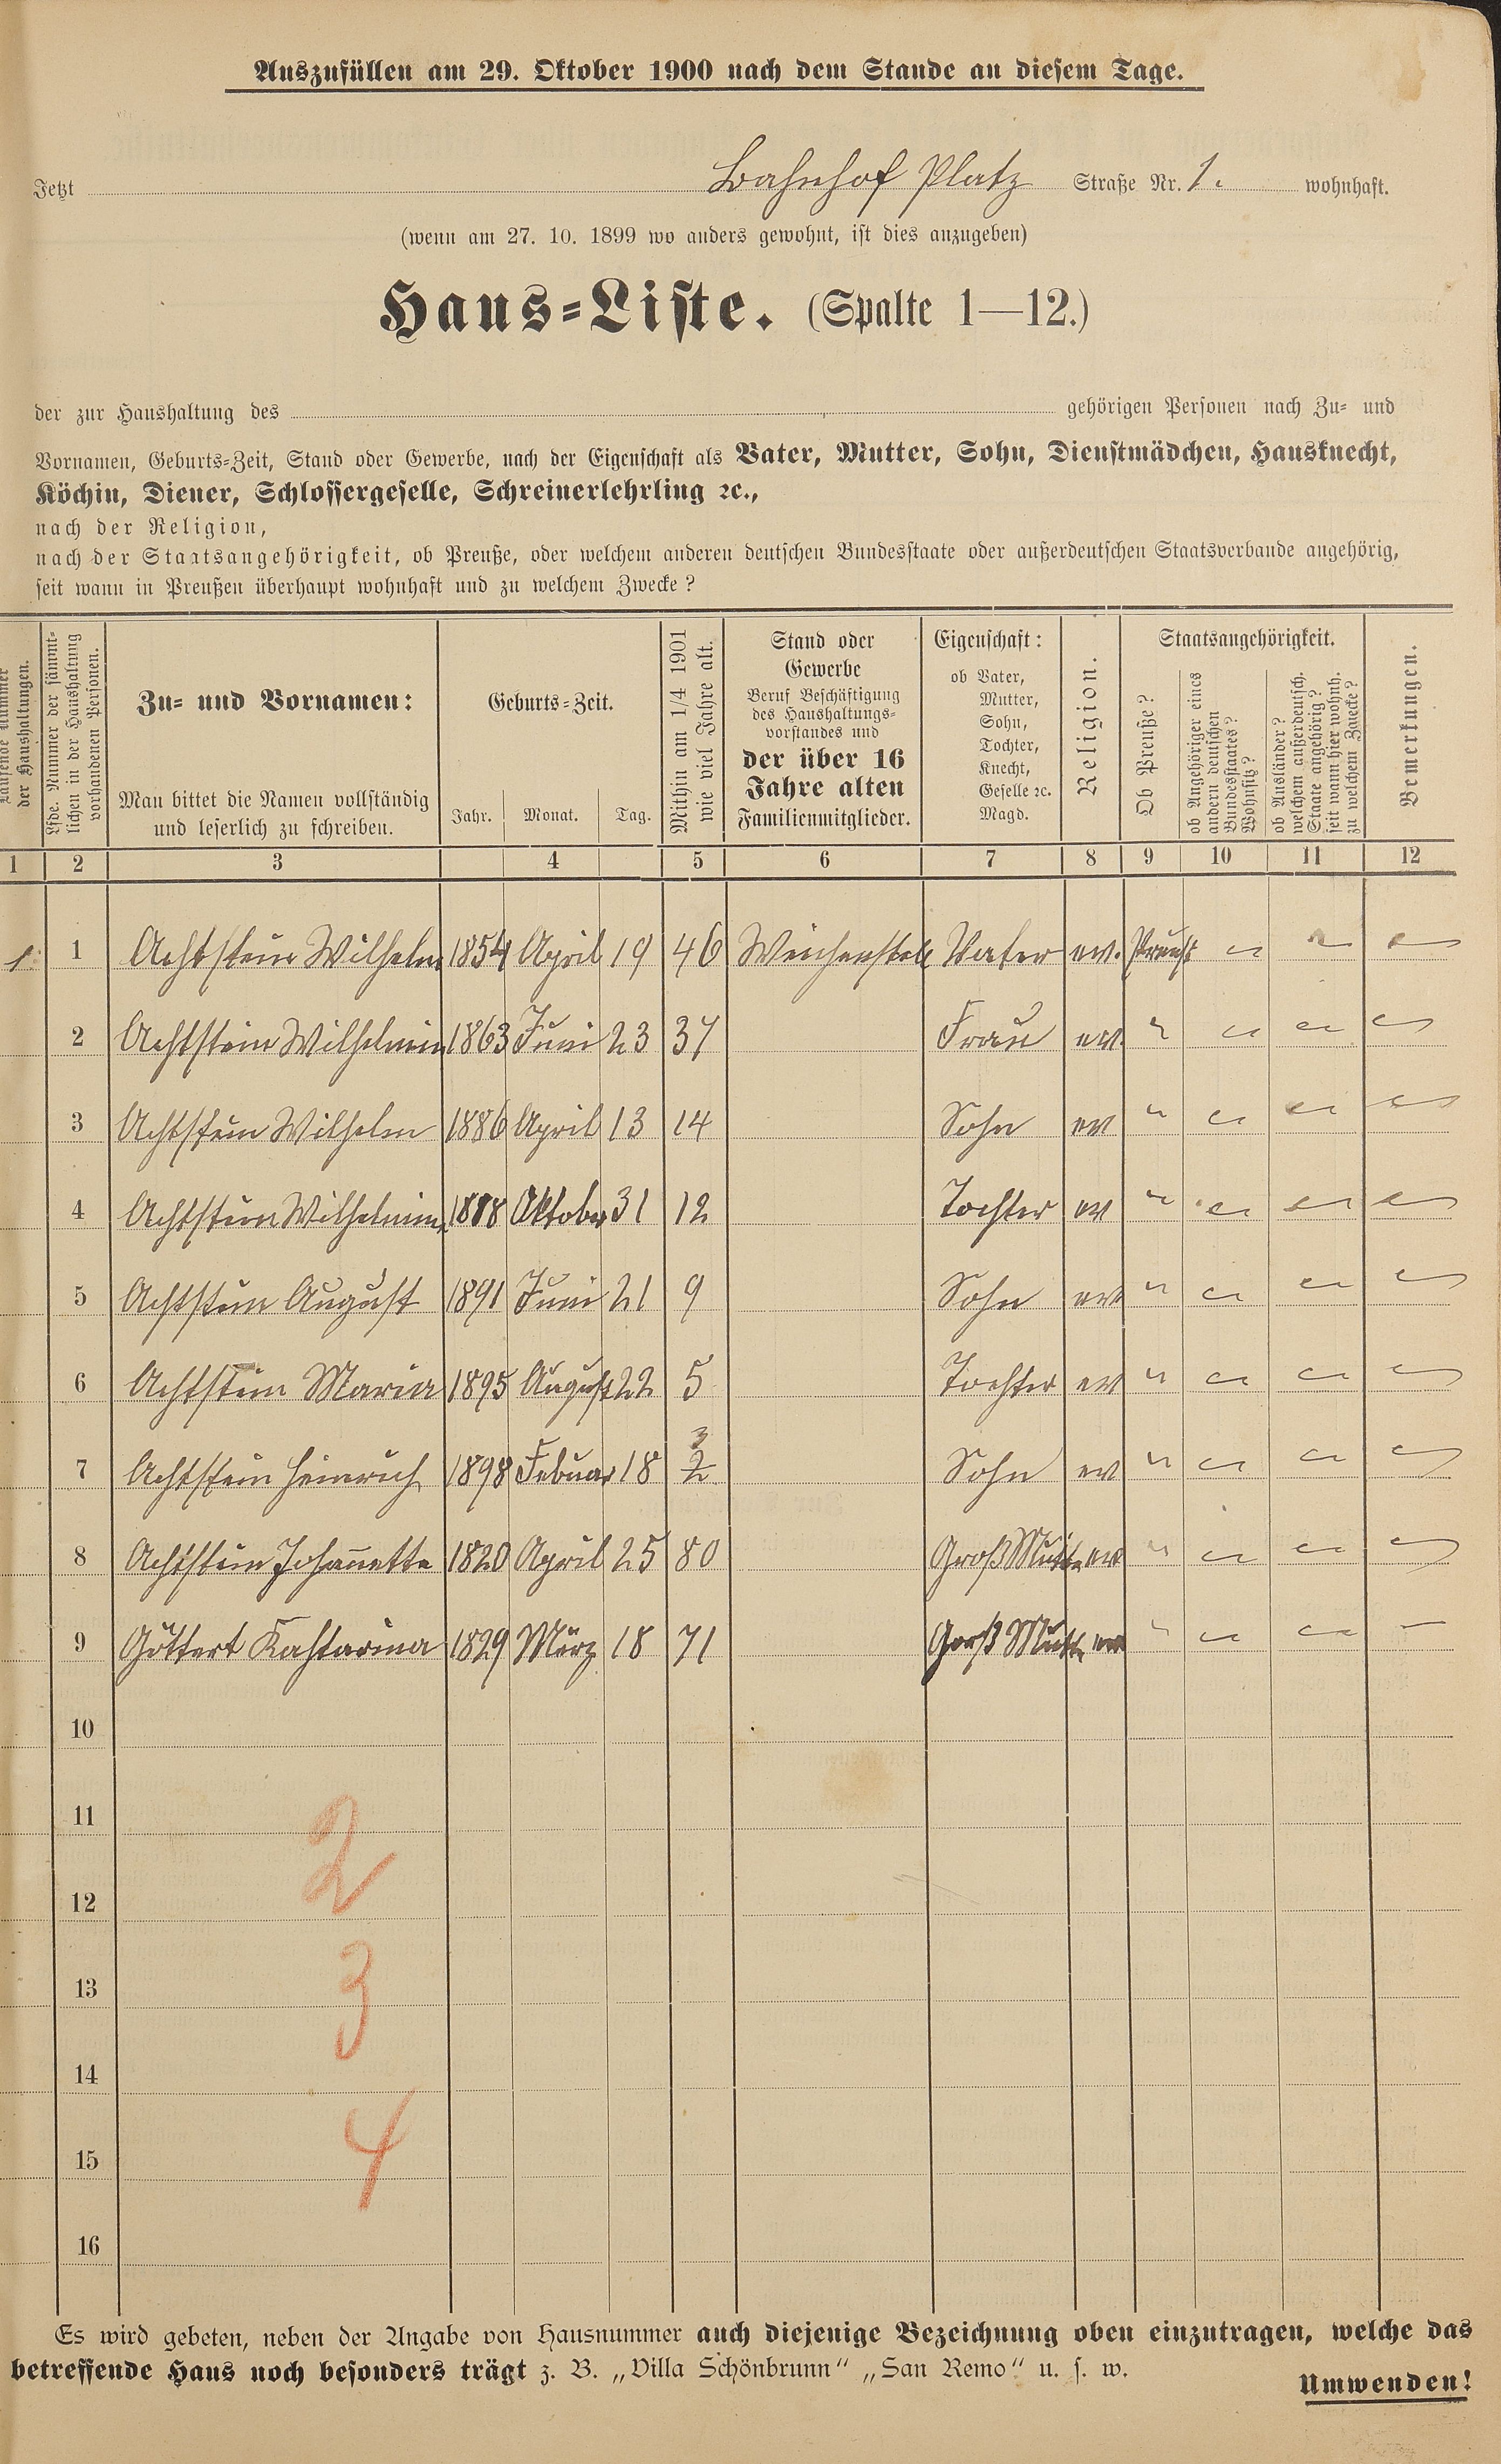 Auszufüllen am 29. Oktober 1900 nach dem Stande an diesem Tage.
Jetzt Bahnhof Platz Straße Nr. 1. wohnhaft.
(wenn am 27. 10. 1899 wo anders gewohnt, ist dies anzugeben)
Haus-Liste. (Spalte 1—12.)
der zur Haushaltung des gehörigen Personen nach Zu- und
Vornamen, Geburts-Zeit, Stand oder Gewerbe, nach der Eigenschaft als Vater, Mutter, Sohn, Dienstmädchen, Hausknecht,
Köchin, Diener, Schlossergeselle, Schreinerlehrling ꝛc.,
nach der Religion,
nach der Staatsangehörigkeit, ob Preuße, oder welchem anderen deutschen Bundesstaate oder außerdeutschen Staatsverbande angehörig,
seit wann in Preußen überhaupt wohnhaft und zu welchem Zwecke?
Laufende Nummer
der Haushaltungen.
Lfde. Nummer der sämmt-
lichen in der Haushaltung
vorhandenen Personen.
Zu- und Vornamen:
Man bittet die Namen vollständig
und leserlich zu schreiben.
Geburts-Zeit.
Jahr. Monat. Tag.
Mithin am 1/4 1901
wie viel Jahre alt.
Stand oder
Gewerbe
Beruf Beschäftigung
des Haushaltungs-
vorstandes und
der über 16
Jahre alten
Familienmitglieder.
Eigenschaft:
ob Vater,
Mutter,
Sohn,
Tochter,
Knecht,
Geselle ꝛc.
Magd.
Religion.
Staatsangehörigkeit.
Ob Preuße?
ob Angehöriger eines
andern deutschen
Bundesstaates?
Wohnsitz?
ob Ausländer?
welchem außerdeutsch.
Staate angehörig?
seit wann hier wohnh.
zu welchem Zwecke?
Bemerkungen.
1 2 3 4 5 6 7 8 9 10 11 12
1. 1 Achtstein Wilhelm 1854 April 19 46 Weichenstell Vater ev. Preuße " " "
2 Achtstein Wilhelmin 1863 Juni 23 37 Frau ev. " " " "
3 Achtstein Wilhelm 1886 April 13 14 Sohn ev " " " "
4 Achtstein Wilhelmine 1888 Oktober 31 12 Tochter ev " " " "
5 Achtstein August 1891 Juni 21 9 Sohn ev " " " "
6 Achtstein Maria 1895 August 22 5 Tochter ev " " " "
7 Achtstein Heinrich 1898 Februar 18 2 3 Sohn ev " " " "
8 Achtstein Johannette 1820 April 25 80 Groß Mutte ev " " " "
9 Göttert Kahtarina 1829 März 18 71 Groß Mutte ev " " " –
10
11
2
12
13
3
14
15
4
16
Es wird gebeten, neben der Angabe von Hausnummer auch diejenige Bezeichnung oben einzutragen, welche das
betreffende Haus noch besonders trägt z. B. „Villa Schönbrunn“ „San Remo“ u. s. w.
Umwenden!